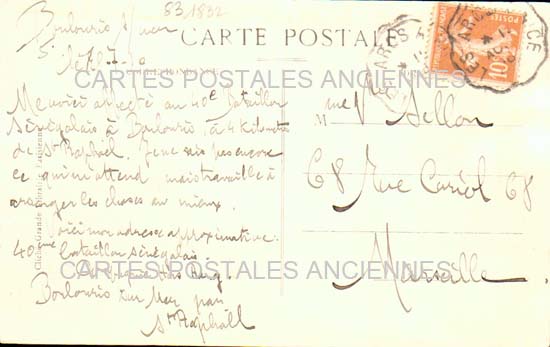 83 1832
Boulouris s/ mer
CARTE POSTALE
CARTES POSTALES ANCIENNES
Me voici affecté au 40e Bataillon
Sénégalais à Boulouris, à 4 kilomètres
de St Raphaël. Je ne sais pas encore
ce qui m'attend mais travaille à
arranger les choses au mieux.
Voici mon adresse approximative.
40ème bataillon sénégalais.
CARTES POSTALES ANCIENNES
Boulouris sur Mer par
St Raphaël
M
me Vve Sellon
68 Rue Curiol 68
Marseille
LES ARCS
10c